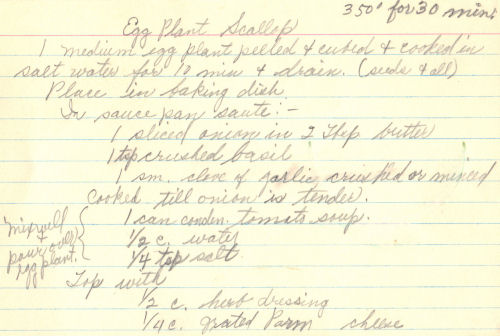 350° for 30 mins
Egg Plant Scallop
1 medium egg plant pelled & cubed & cooked in
salt water for 10 min & drain. (seeds & all)
Place in baking dish.
In sauce pan saute:-
1 sliced onion in 2 Tbsp butter
1 tsp crushed basil
1 sm. clove of garlic crushed or minced
Cooked till onion is tender.
1 can conden. tomato soup.
1/2 c. water
1/4 tsp salt.
mix well
+
pour over
egg plant.
Top with
1/2 c. herb dressing
1/4 c. grated Parm cheese